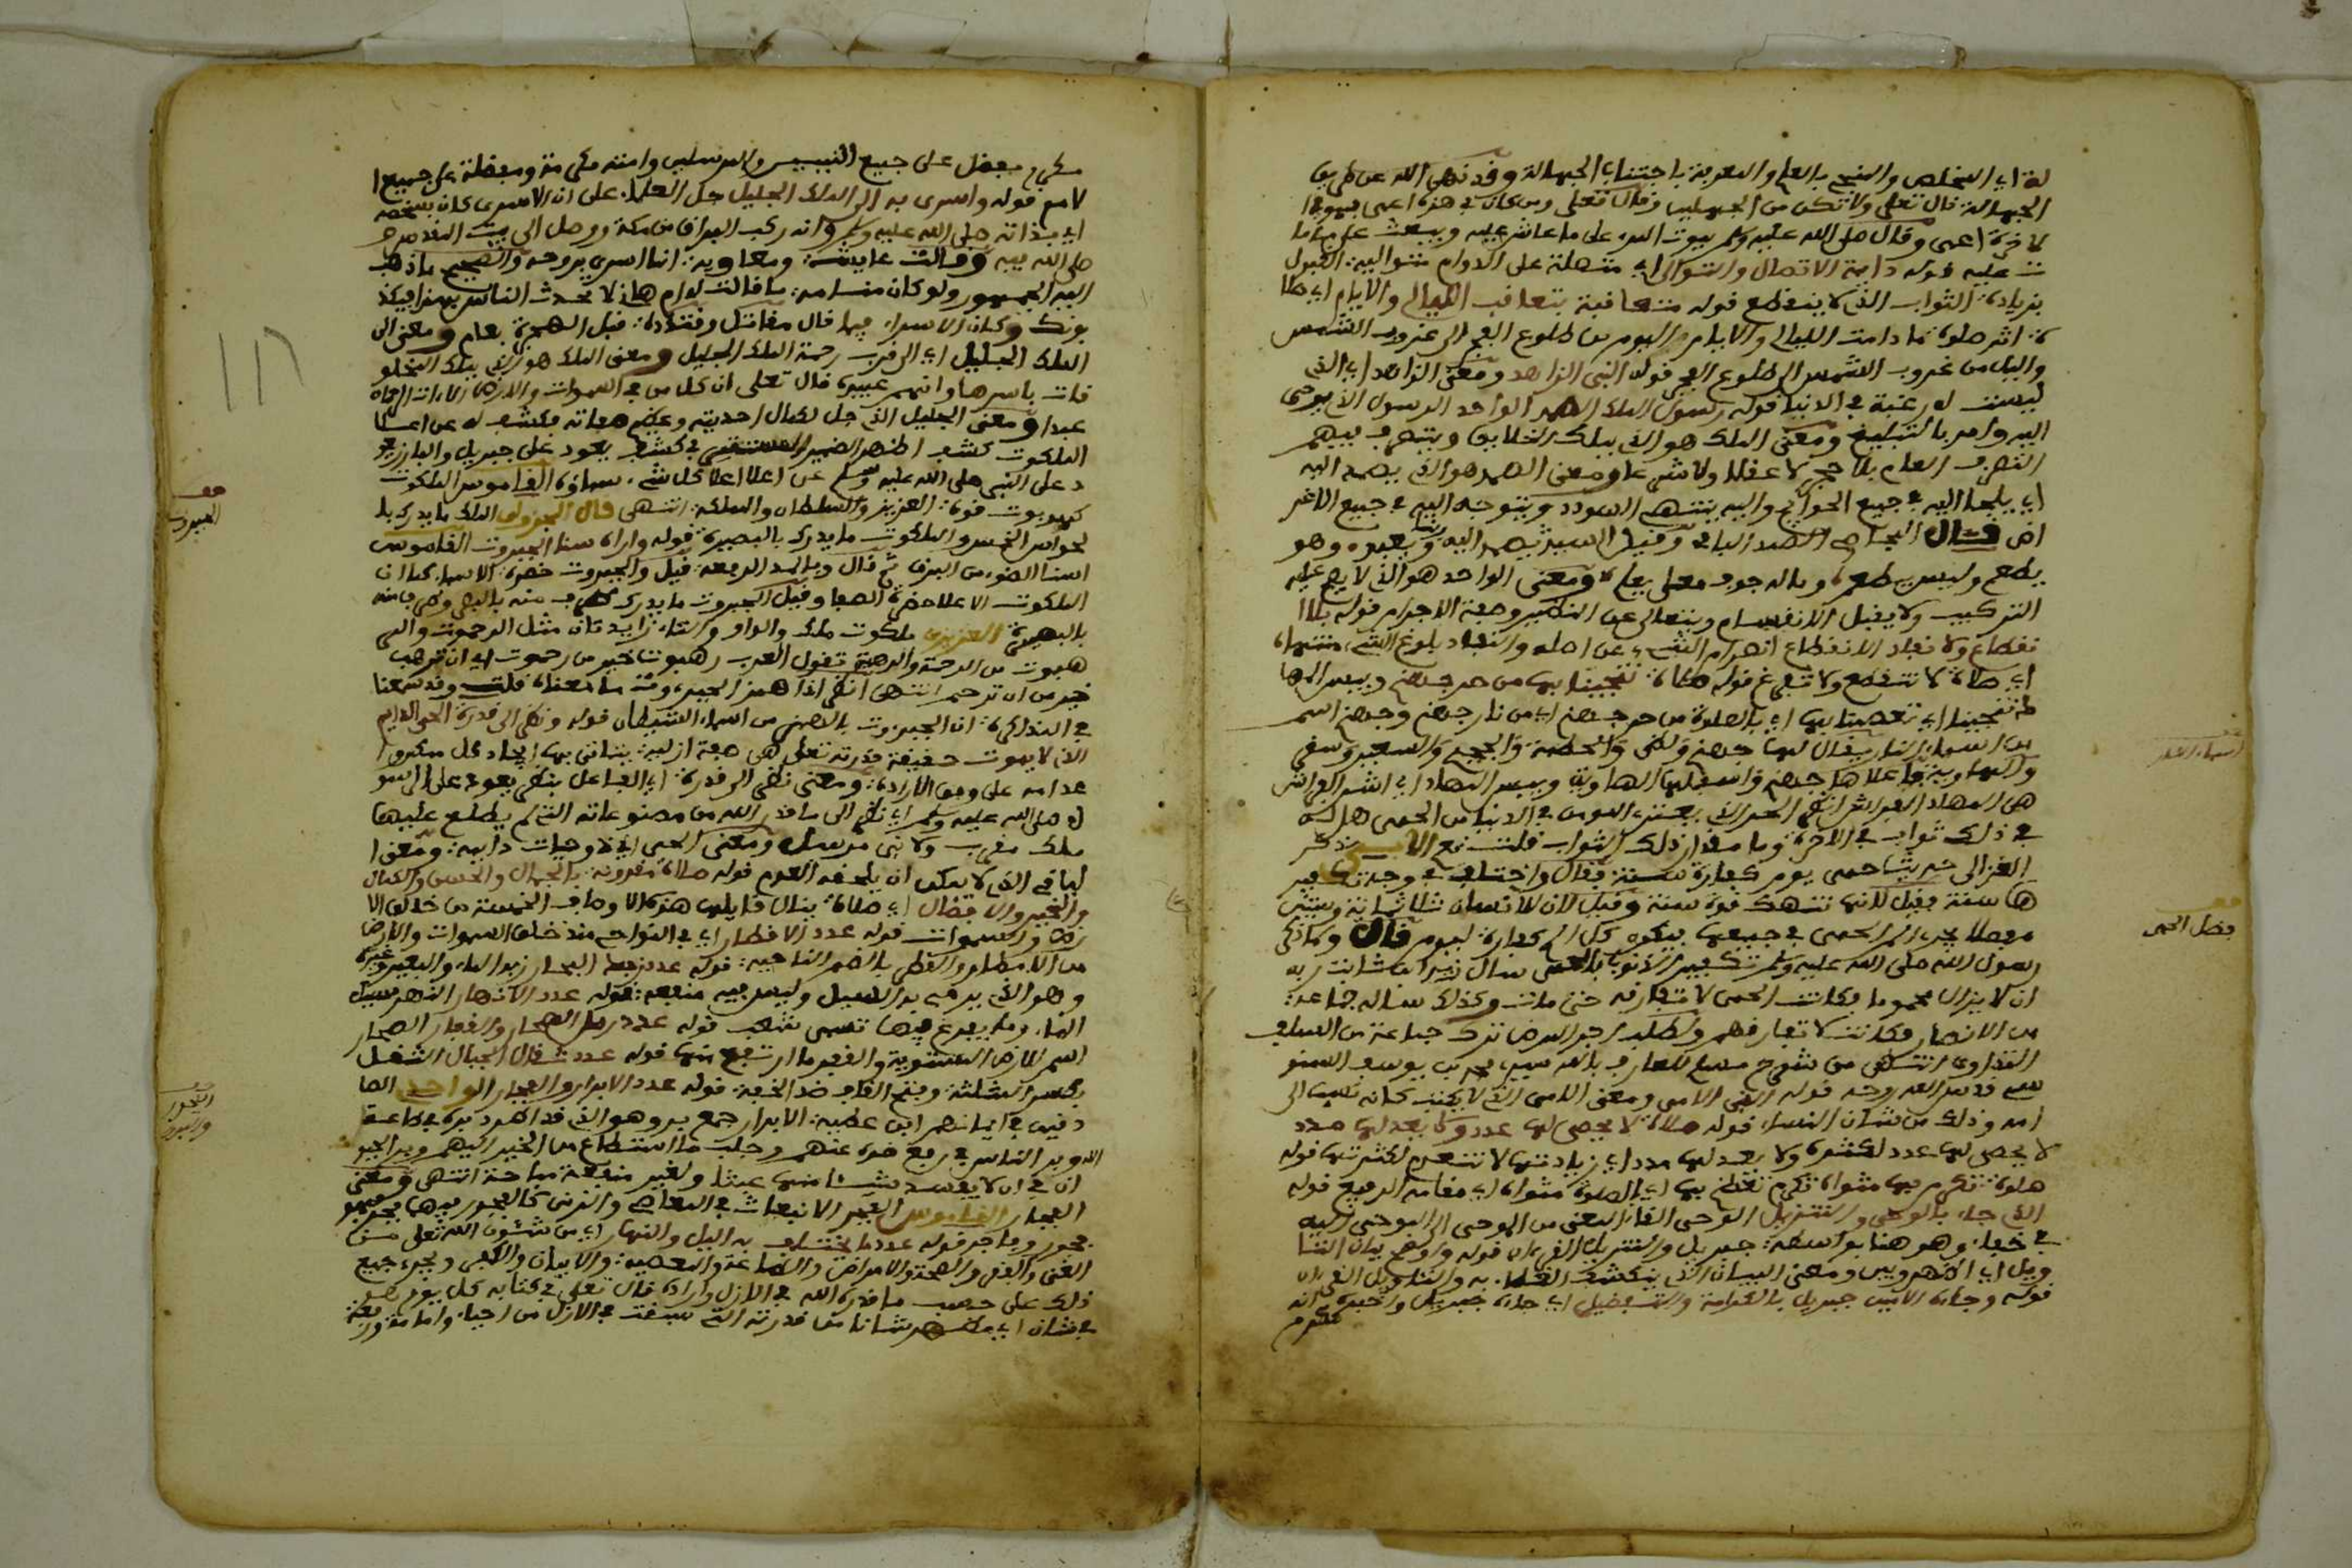 لة اي التخلص والتنجي بالعلم والمعرفة باجتناب الجهالة وقد نهى الله عن طريق
الجهالة قال تعلى ولا تكن من الجهلين وقال تعلى ومن كان في هذه اعمى فهو في ا
لاخرة اعمى وقال صلى الله عليه وسلم يموت المرء على ما عاش عليه ويبعث على ما ما
ت عليه قوله دايمة الاتصال والتوالي اي متصلة على الدوام متوالية القبول
بزيادة الثواب الذي لا ينقطع قوله متعاقبة بتعاقب الليالي والايام اي صلا
ة اثر صلوة ما دامت الليالي والايام واليوم من طلوع الفجر الى غروب الشمس
والليل من غروب الشمس الى طلوع الفجر قوله النبي الزاهد ومعنى الزاهد اي الذي
ليست له رغبة في الدنيا قوله رسول الملك الصمد الواحد الرسول الذي يوحى
اليه وامر بالتبليغ ومعنى الملك هو الذي يملك الخلايق ويتصرف فيهم
التصرف العام بلا حجر لا عقلا ولا شرعا ومعنى الصمد هو الذي يصمد اليه
اي يلجأ اليه في جميع الحوايج واليه ينتهي السودد ويتوجه اليه في جميع الاغر
اض وقال الصمد الباقي وقيل السيد يصمد اليه ويعبد وهو
يطعم وليس يطعم ومعنى الواحد هو الذي لا يصح عليه
التركيب ولا يقبل الانقسام ويتعالى عن النظير وصفة الاجرام قوله بلا ا
نقطاع ولا نفاد الانقطاع انصرام الشيء عن اصله والنفاد بلوغ الشيء منتهاه
اي صلاة لا تنقطع ولا تفرغ قوله صلاة تنجينا بها من حر جهنم وبيس المها
د تنجينا اي تعصمنا بها اي بالصلوة من حر جهنم اي من نار جهنم وجهنم اسم
من اسماء النار يقال لها جهنم ولظى والحطمة والجحيم والسعير وسقر
والهاوية فاعلاها جهنم واسفلها الهاوية وبيس المهاد اي الفراش
في ذلك ثواب في الاخرة وما مقدار ذلك الثواب قلت نعم
الغزالي حديث حمى يوم كفارة سنة فقال واختلف في وجه تكفير
ها سنة فقيل لانها تهدك قوة سنة وقيل لان للانسان ثلاثماية وستين
مفصلا الحمى في جميعها فيكون كل الم كفارة ليوم قال ولما ذكر
رسول الله صلى الله عليه وسلم تكفير الذنوب بالحمى سال زيد ابن ثابت ربه
ان لا يزال محموما فكانت الحمى لا تفارقه حتى مات وكذلك سأله جماعة
من الانصار فكانت لا تفارقهم ولطلب اجر المرض ترك جماعة من السلف
التداوي انتهى من شرح مسلم للعارف بالله سيدي محمد بن يوسف السنو
سي قدس الله روحه قوله النبي الامي ومعنى الامي الذي لا يكتب كانه نسب الى
امه وذلك من شان النساء قوله صلاة لا يحصى لها عدد ولا يعد لها مدد
لا يحصى لها عدد لكثرة ولا يعد لها مدد اي زيادتها لا تنعدم لكثرتها قوله
صلوة تكرم بها مثواه تكرم تعظم بها اي بالصلوة مثواه اي مقامه الرفيع قوله
الذي جاء بالوحي والتنزيل الوحي القاء المعنى من الموحي الى الموحى اليه
في خفاء وهو هنا بواسطة جبريل والتنزيل القران قوله واوضح بيان التا
ويل اي اظهر وبين ومعنى البيان الذي ينكشف به والتاويل
قوله وجاءه الامين جبريل بالكرامة والتفضيل اي جاءه جبريل واخبره انه
مكرم
اسماء النار
فضل الحمى
مكرم مفضل على جميع النبيين والمرسلين وامته مكرمة ومفضلة على جميع ا
لامم قوله واسرى به الى الملك الجليل جل العلماء على ان الاسرى كان بشخصه
اي بذاته صلى الله عليه وسلم وانه ركب البراق من مكة ووصل الى بيت المقدس و
صلى الله فيه وقالت عايشة ومعاوية انما اسري بروحه والصحيح ما ذهب
اليه الجمهور ولو كان مناما ما قالت له ام هاني لا تحدث الناس بهذا فيكذ
بونك وكان الاسراء فيما قال مقاتل وقتادة قبل الهجرة بعام ومعنى الى
الملك الجليل اي الى قرب رحمة الملك الجليل ومعنى الملك هو الذي يملك المخلو
قات باسرها وانهم عبيده قال تعلى ان كل من في السموات والارض الا ات الرحمان
عبدا ومعنى الجليل الذي جل لكمال احديته وعظيم صفاته فكشف له عن اعلا
الملكوت كشف اظهر الضمير المستتر في كشف يعود على جبريل والبارز يعو
د على النبي صلى الله عليه وسلم عن اعلا اعلا كل شيء سماؤه القاموس الملكوت
كرهبوت قوة العزيز والسلطان والمملكة انتهى قال الجزولي الملك ما يدرك با
لحواس الخمس والملكوت ما يدرك بالبصيرة قوله واراه سنا الجبروت القاموس
السنا الضوء من البرق ثم قال وبالمد الرفعة قيل والجبروت حضرة الاسماء كما ان
الملكوت الاعلا حضرة الصفا وقيل الجبروت ما يدرك طرف منه بالبصر وطرف منه
بالبصيرة العزيزي ملكوت ملك والواو والتاء زايدتان مثل الرحموت والر
هبوت من الرحمة والرهبة تقول العرب رهبوت خير من رحموت اي ان ترهب
خير من ان ترحم انتهى انظر اذا همز الجبروت ما معناه قلت وقد سمعنا
في المذاكرة ان الجبروت بالهمز من اسماء الشيطان قوله ونظر الى قدرة الحي الدايم
الذي لا يموت حقيقة قدرته تعلى هي صفة ازلية يتاتى بها ايجاد كل ممكن وا
عدامه على وفق الارادة ومعنى نظر الى قدرة اي الفاعل بنظر يعود على الرسو
ل صلى الله عليه وسلم اي نظر الى ما قدر الله من مصنوعاته التي لم يطلع عليها
ملك مقرب ولا نبي مرسل ومعنى الحي اي ذو حيات دايمة ومعنى ا
لباقي الذي لا يمكن ان يلحقه العدم قوله صلاة مقرونة بالجمال والحسن والكمال
والخير والافضال اي صلاة ينال قايلها هذه الاوصاف الخمسة من خالق الا
رض والسموات قوله عدد الاقطار اي في النواحي منذ خلق السموات والارض
من الامطار والقطر بالضم الناحية قوله عدد زبد البحار زبد الماء والبعير وغيره
وهو الذي يرمي به السيل وليس فيه منفعة قوله عدد الانهار النهر مسيل
الماء وما يتفرع فيها تسمى شعب قوله عدد رمل الصحار والقفار الصحار
اسم للارض المستوية والقفر ما ارتفع منها قوله عدد ثقال الجبال الثقل
بكسر المثلثة وفتح القاف ضد الخفة قوله عدد الابرار والفجار الواحدي الصا
دقين في ايمانهم ابن عطية الابرار جمع بر وهو الذي قد اطرد بره في طاعة
الله وبر الناس في رفع ضره عنهم وجلب ما استطاع من الخير اليهم وبر الحيو
ان في ان لا يفسد شيئا منها عبثا ولغير منفعة مباحة انتهى ومعنى
الفجار القاموس الفجر الانبعاث في المعاصي والزنى كالفجور فيهما فجر فهو
فجور وفاجر قوله عدد ما يختلف به الليل والنهار اي من شئون الله تعلى من
الغنى والفقر والصحة والامراض والطاعة والمعصية والايمان والكفر ويجري جميع
ذلك على حسب ما قدره الله في الازل واراده قال تعلى في كتابه كل يوم هو
في شان اي مظهر شانا مما قدرته التي سبقت في الازل من احياء واماتة ورفعة
الجبروت
الفجور
والبرور